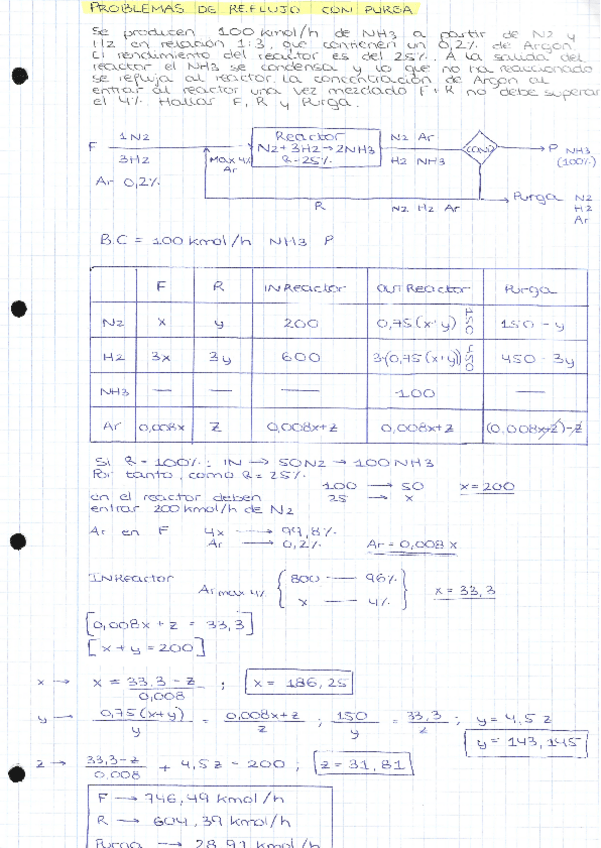 PROBLEMAS DE REFLUJO CON PURGA
Se producen 100 kmol/h de NH3 a partir de N2 y
H2 en relación 1:3, que contienen un 0,2% de Argon.
El rendimiento del reactor es del 25%. A la salida del
reactor el NH3 se condensa y lo que no ha reaccionado
se refluja al reactor. La concentración de Argon al
entrar al reactor una vez mezclado F+R no debe superar
el 4%. Hallar F, R y Purga.
F
1N2
3H2
Ar 0,2%
Max 4%
Ar
Reactor
N2+3H2→2NH3
R=25%
N2 Ar
H2 NH3
COND
P NH3
(100%)
R
N2 H2 Ar
Purga N2
H2
Ar
B.C = 100 kmol/h NH3 P
F R IN Reactor OUT Reactor Purga
N2 x y 200 0,75(x+y) 150 150-y
H2 3x 3y 600 3·(0,75(x+y)) 450 450-3y
NH3 — — — 100 —
Ar 0,008x z 0,008x+z 0,008x+z (0,008x+z)-z
Si R=100%: IN → 50N2 → 100NH3
Por tanto, como R=25%
en el reactor deben
entrar 200 kmol/h de N2
100 → 50
25 → x
x=200
Ar en F 4x → 99,8%
Ar → 0,2%
Ar=0,008x
IN Reactor Ar max 4% { 800 — 96%
x — 4% }
x=33,3
[0,008x+z = 33,3]
[x+y=200]
x → x = 33,3-z / 0,008 ; x= 186,25
y → 0,75(x+y) / y = 0,008x+z / z ; 150 / y = 33,3 / z ; y=4,5z
y=143,145
z → 33,3-z / 0,008 + 4,5z - 200 ; z=31,81
F → 746,49 kmol/h
R → 604,39 kmol/h
Purga → 28,91 kmol/h